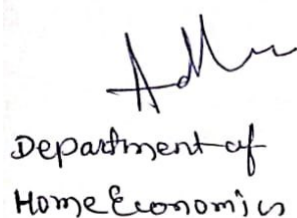 Department of
Home Economics